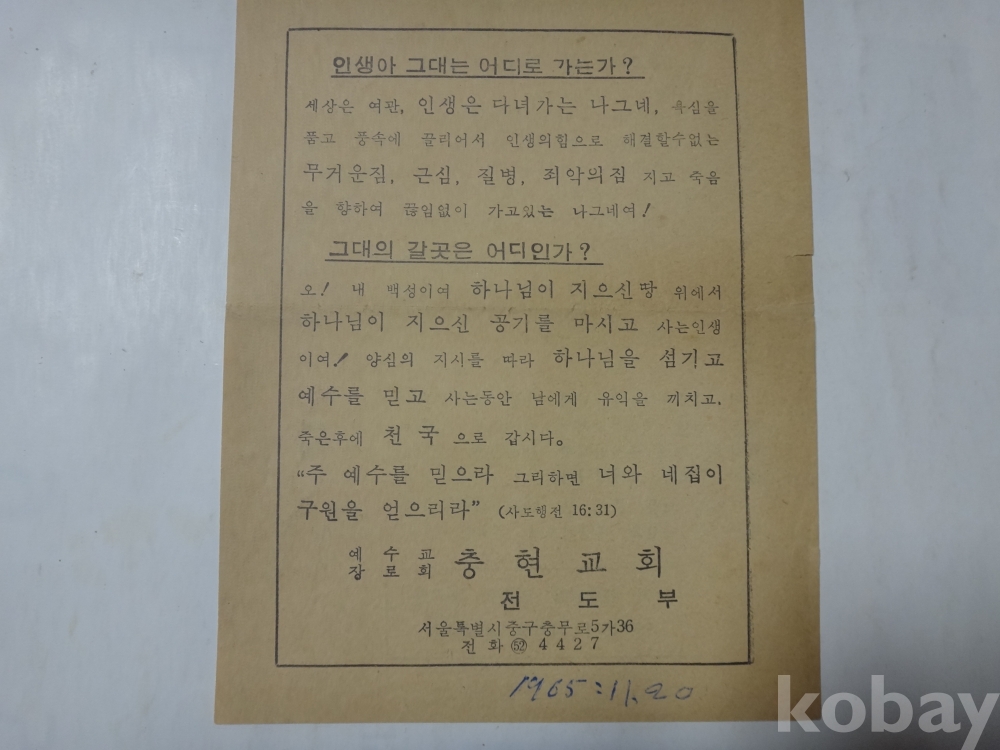 인생아 그대는 어디로 가는가?
세상은 여관, 인생은 다녀가는 나그네, 욕심을
품고 풍속에 끌리어서 인생의힘으로 해결할수없는
무거운짐, 근심, 질병, 죄악의짐 지고 죽음
을 향하여 끊임없이 가고있는 나그네여!
그대의 갈곳은 어디인가?
오! 내 백성이여 하나님이 지으신땅 위에서
하나님이 지으신 공기를 마시고 사는인생
이여! 양심의 지시를 따라 하나님을 섬기고
예수를 믿고 사는동안 남에게 유익을 끼치고,
죽은후에 천국 으로 갑시다。
“주 예수를 믿으라 그리하면 너와 네집이
구원을 얻으리라” (사도행전 16:31)
예수교
장로회 충현교회
전도부
서울특별시중구충무로5가36
전화 ㊾ 4427
1965:11.20
kobay